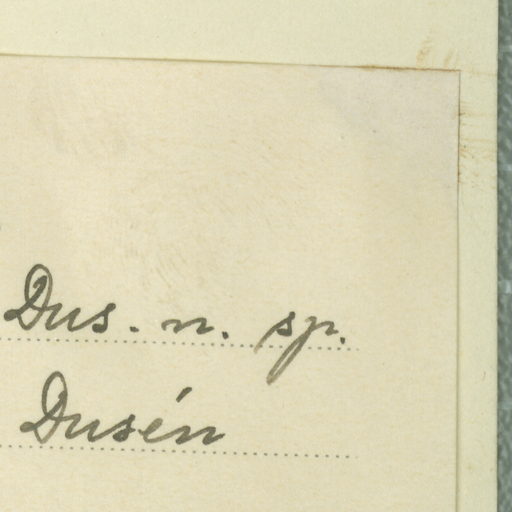 Dus. n. sp.
Dusén